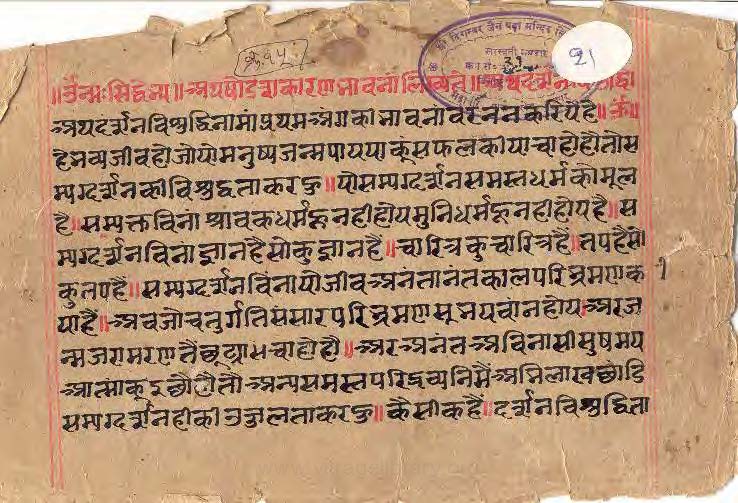 ॥ॐनमःसिद्धेभ्यः॥अथषोडशकारणभावनालिख्यते॥
अथदर्शनविशुद्धिनामांप्रथमअंगकीभावनावरननकरियेहै॥
हेभव्यजीवहोजोयोमनुष्यजन्मपाययाकूंसफलकीयाचाहोहौतोस
म्यग्दर्शनकीविशुद्धताकरहु॥योसम्यग्दर्शनसमस्तधर्मकोमूल
है॥सम्यक्तविनांश्रावकधर्महूनहीहोयमुनिधर्महूनहीहोयहै॥स
म्यग्दर्शनविनाज्ञानहैसोकुज्ञानहै॥चारित्रकुचारित्रहै॥तपहैसो
कुतपहै॥सम्यग्दर्शनविनायोजीवअनंतानंतकालपरिभ्रमणक
याहै॥अवजोचतुर्गतिसंसारपरिभ्रमणसूभयवांनहोय॥अरज
न्मजरामरणतैंछूट्याचाहोहौ॥अरअनंतअविनासीसुषमय
आत्माकूइछौहौतौअन्यसमस्तपरिद्रव्यनिमैंअभिलाखछांडि
सम्यग्दर्शनहीकीउज्जलताकरहु॥कैसीकहै॥दर्शनविशुद्धिता
२१